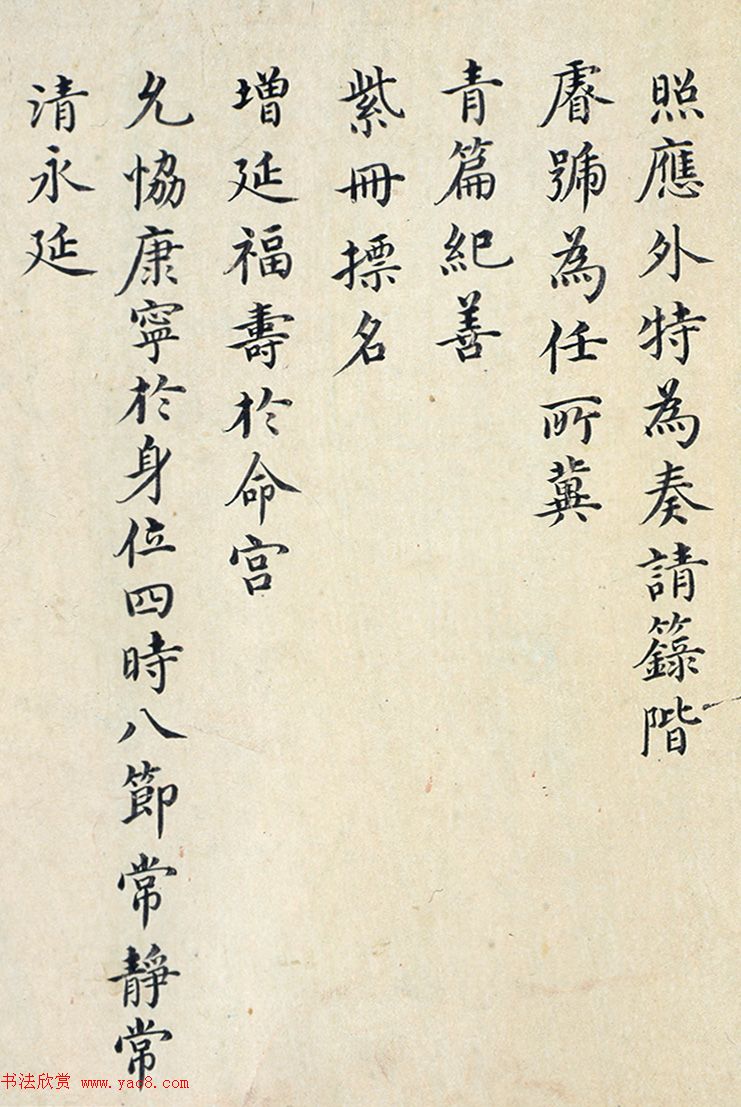 照應外特為奏請籙階
睿號為任所冀
青篇紀善
紫冊摽名
增延福壽於命宮
允恊康寧於身位四時八節常靜常
清永延
书法欣赏 www.yac8.com